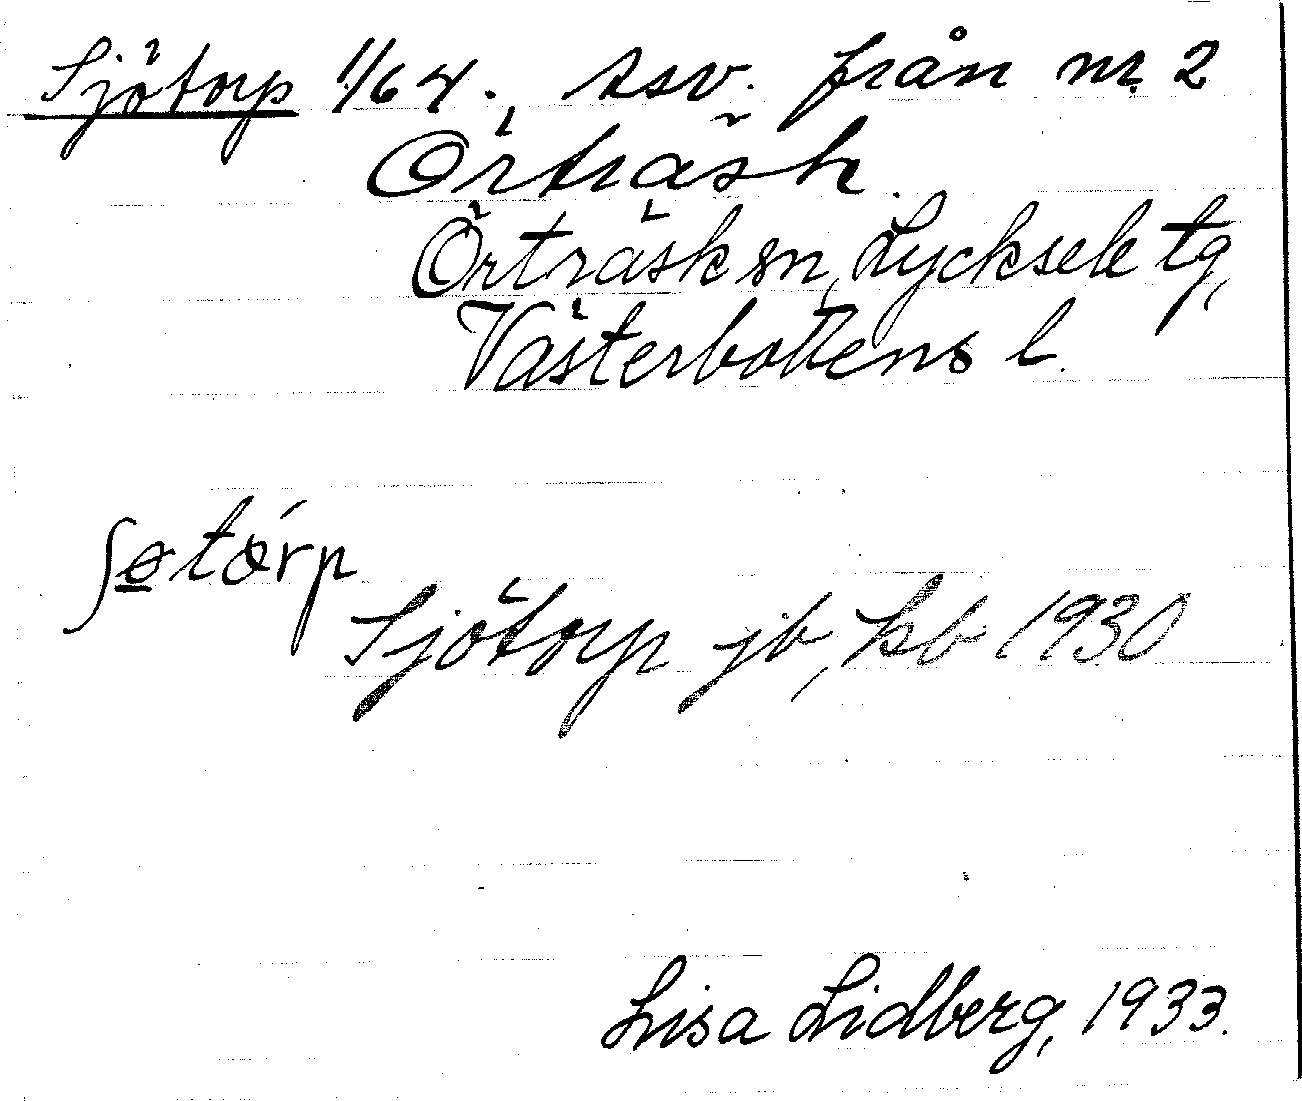 Sjötorp 1/64., ssv. från nr. 2
Örträsk
Örträsk sn, Lycksele tg,
Västerbottens l.
ʃøtórp
Sjötorp jb, kb 1930
Lisa Lidberg, 1933.